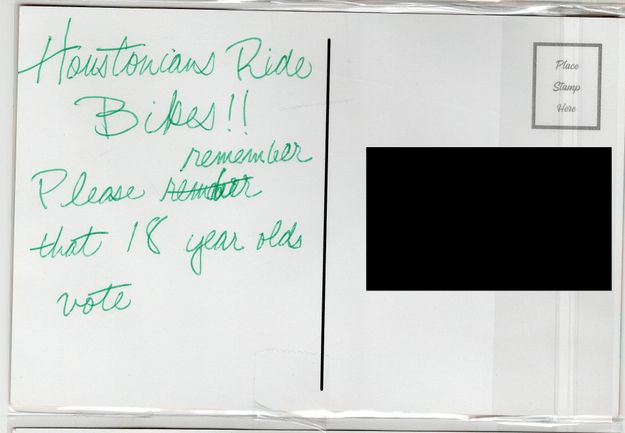 Houstonians Ride
Bikes!!
remember
Please
that 18 year olds
vote
Place
Stamp
Here